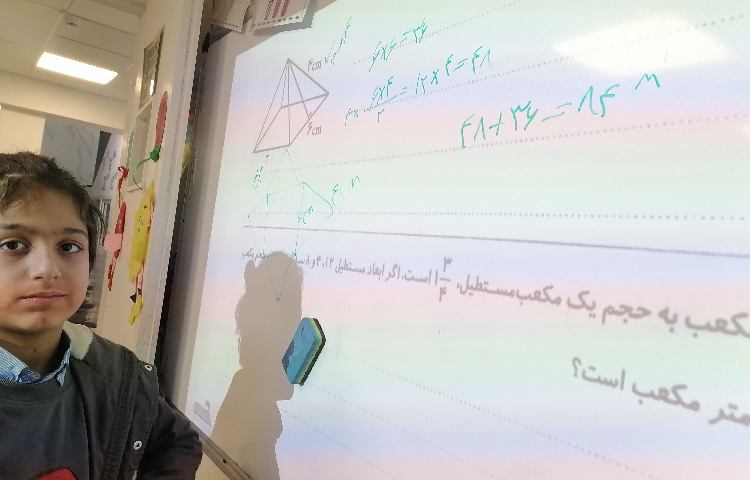 ۴cm
۶cm
۶×۶=۳۶
۴× ۶×۴/۲ =۱۲×۴=۴۸
۴۸+۳۶=۸۴
کعب به حجم یک مکعب‌مستطیل، ۱ ۳/۴ است. اگر ابعاد مستطیل ۱۲، ۴ و ۸
متر مکعب است؟